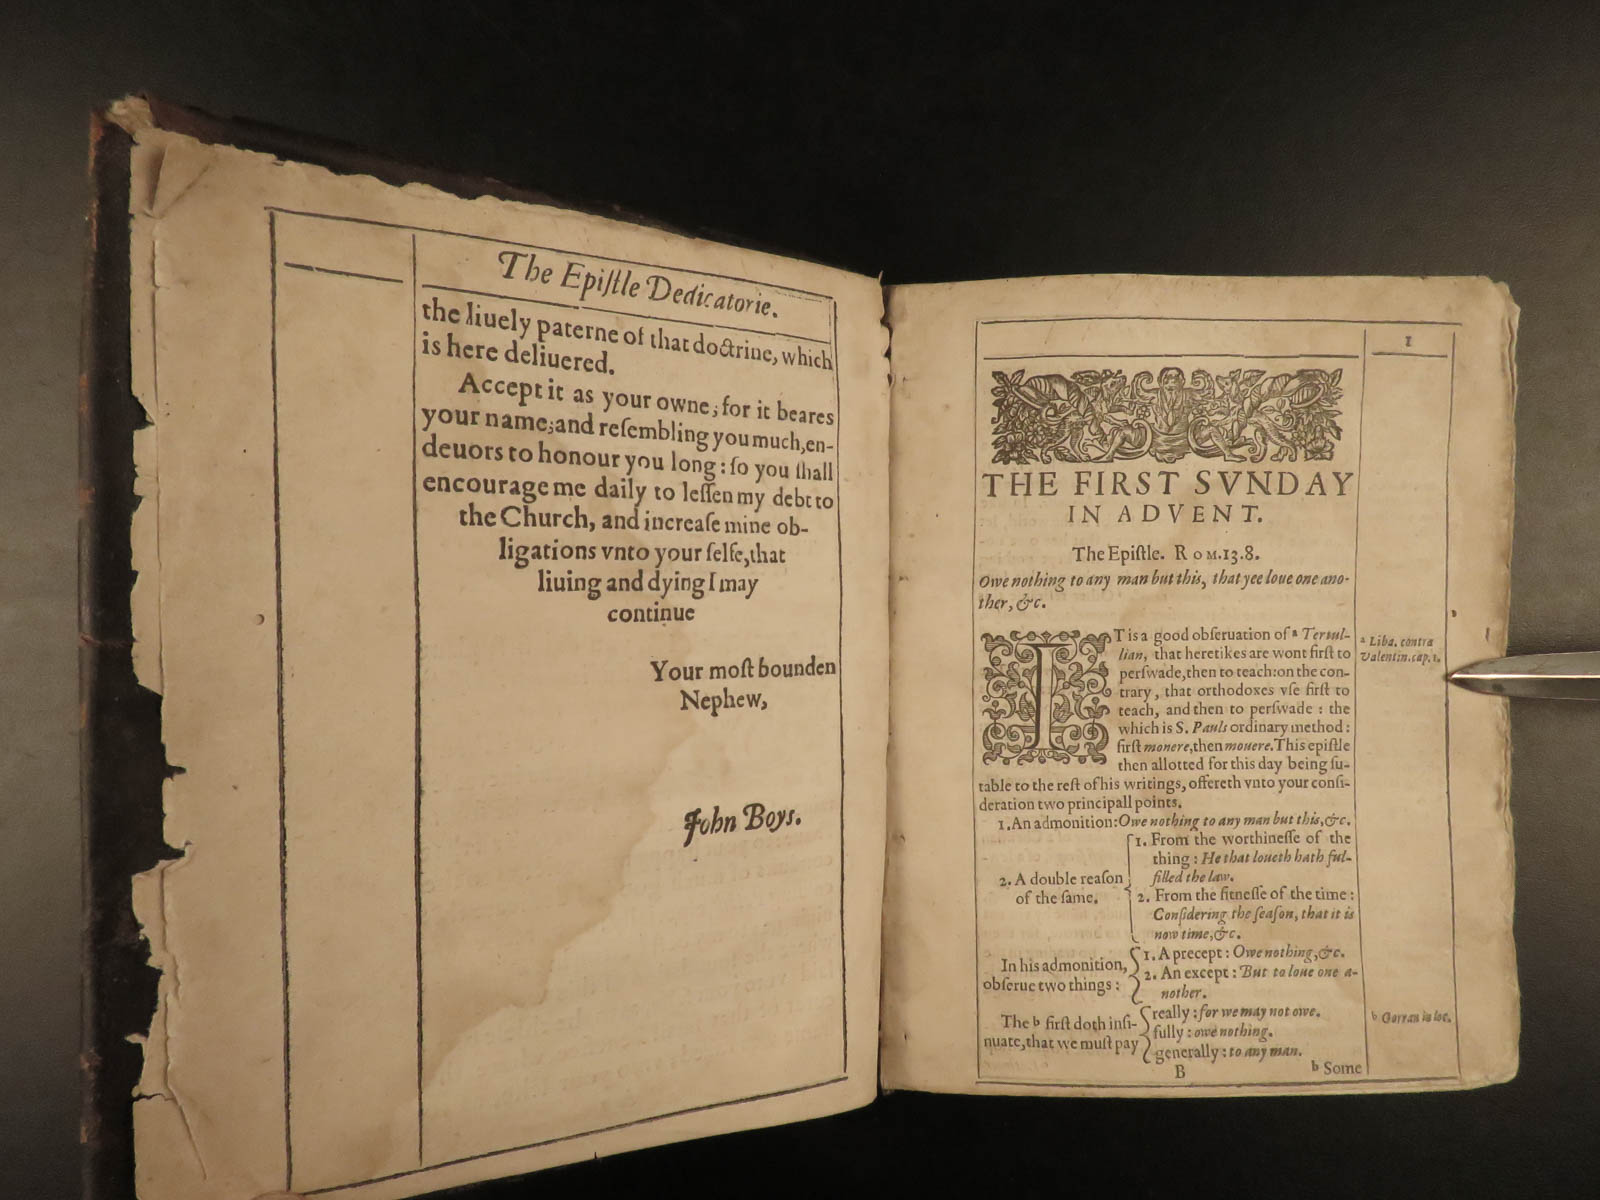 The Epiſtle Dedicatorie.
the liuely paterne of that doctrine, which
is here deliuered.
Accept it as your owne, for it beares
your name, and reſembling you much, en-
deuors to honour you long: ſo you ſhall
encourage me daily to leſſen my debt to
the Church, and increaſe mine ob-
ligations vnto your ſelfe, that
liuing and dying I may
continue
Your moſt bounden
Nephew,
John Boys.
1
THE FIRST SVNDAY
IN ADVENT.
The Epiſtle. ROM.13.8.
Owe nothing to any man but this, that yee loue one ano-
ther, &c.
IT is a good obſeruation of a Tertul-
lian, that heretikes are wont firſt to
perſwade, then to teach: on the con-
trary, that orthodoxes vſe firſt to
teach, and then to perſwade: the
which is S. Pauls ordinary method:
firſt monere, then mouere. This epiſtle
then allotted for this day being ſu-
table to the reſt of his writings, offereth vnto your conſi-
deration two principall points.
1. An admonition: Owe nothing to any man but this, &c.
2. A double reaſon
of the ſame.
1. From the worthineſſe of the
thing: He that loueth hath ful-
filled the law.
2. From the fitneſſe of the time:
Conſidering the ſeaſon, that it is
now time, &c.
In his admonition,
obſerue two things:
1. A precept: Owe nothing, &c.
2. An except: But to loue one a-
nother.
The b firſt doth inſi-
nuate, that we muſt pay
really: for we may not owe.
fully: owe nothing.
generally: to any man.
B
b Some
a Lib a. contra
Valentin. cap. 1.
b Gorran in loc.